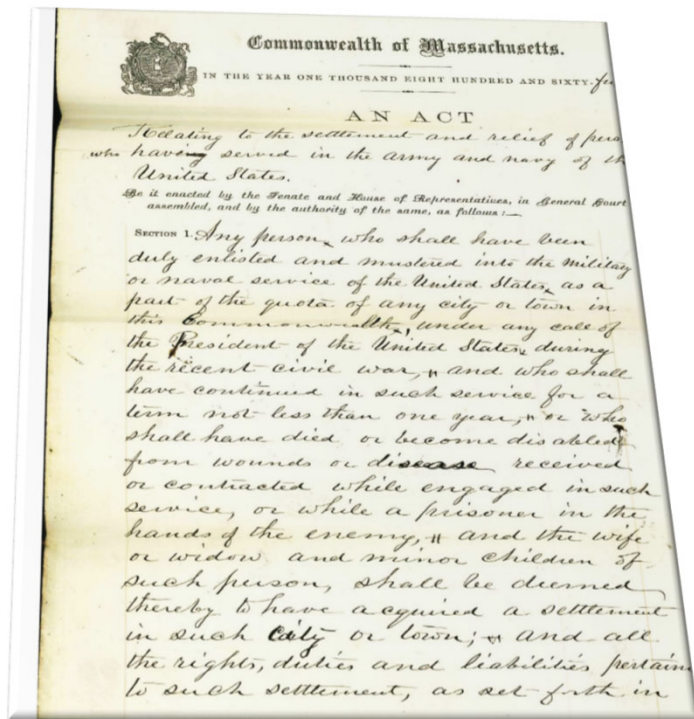 Commonwealth of Massachusetts.
IN THE YEAR ONE THOUSAND EIGHT HUNDRED AND SIXTY-
AN ACT
Relating to the settlement and relief of
who having served in the army and navy of
United States.
Be it enacted by the Senate and House of Representatives, in General Court
assembled, and by the authority of the same, as follows:—
SECTION 1. Any person, who shall have been
duly enlisted and mustered into the military
or naval service of the United States, as a
part of the quota of any city or town in
this Commonwealth, under any call of
the President of the United States, during
the recent civil war, and who shall
have continued in such service for a
term not less than one year, or who
shall have died or become disabled
from wounds or disease received
or contracted while engaged in such
service, or while a prisoner in the
hands of the enemy, and the wife
or widow and minor children of
such person, shall be deemed
thereby to have acquired a settlement
in such city or town; and all
the rights, duties and liabilities
to such settlement, as set forth in